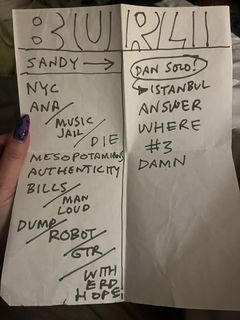 BURLI
SANDY →
NYC
ANA/
MUSIC
JAIL/
DIE
MESOPOTAMIANS
AUTHENTICITY
BILLS/
MAN
LOUD
DUMP/
ROBOT/
GTR/
WITH
ERD
HOPE
DAN SOLO?
ISTANBUL
ANSWER
WHERE
#3
DAMN